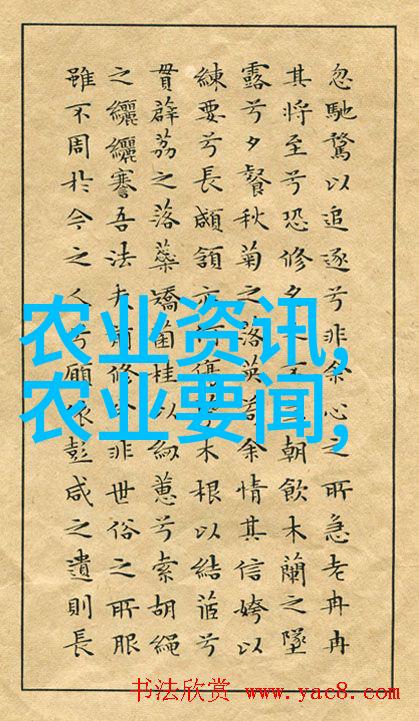 忽馳騖以追逐兮非余心之所急老冉冉
其將至兮恐修朝飲木蘭之墜
露兮夕餐秋菊之落英若余情其信姱以
練要兮長顑頷亦何傷木根以結茝兮
貫薜荔之落蘂矯菌桂以紉蕙兮索胡繩
之纚纚謇吾法夫前修兮非世俗之所服
雖不周於今之人兮願依彭咸之遺則長
农业资讯,
农业要闻,
书法欣赏 www.yac8.com